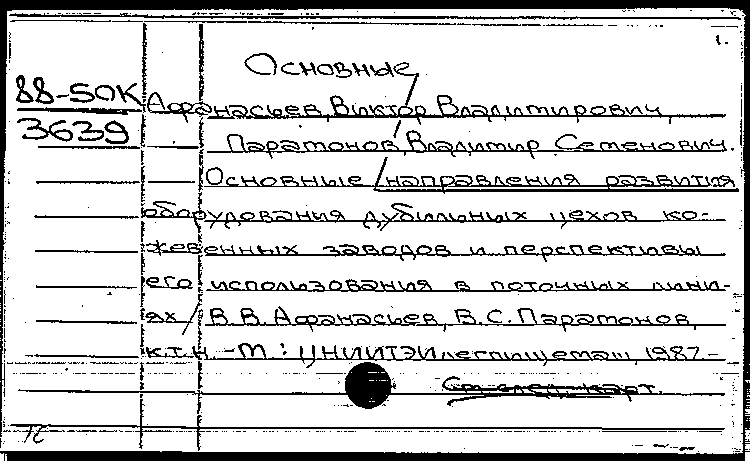 1.
Основные
88-50К
3639
Афанасьев, Виктор Владимирович,
Парамонов, Владимир Семенович.
Основные направления развития
оборудования дубильных цехов ко-
жевенных заводов и перспективы
его использования в поточных лини-
ях / В.В. Афанасьев, В.С. Парамонов,
к.т.н. - М. : ЦНИИТЭИлегпищемаш, 1987 -
См. след. карт.